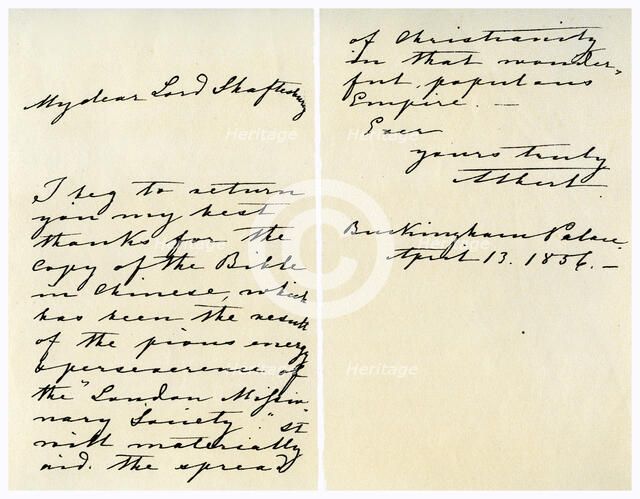 My dear Lord Shaftesbury
I beg to return
you my best
thanks for the
Copy of the Bible
in Chinese, which
has been the result
of the pious energy
& perseverence of
the "London Missio
nary Society". It
will materially
aid. the spread
of Christianity
in that wonder,
ful, populous
Empire. —
Ever
yours truly
Albert
Buckingham Palace.
April 13. 1856. —
Heritage
Heritage
Heritage
Heritage
Heritage
Heritage